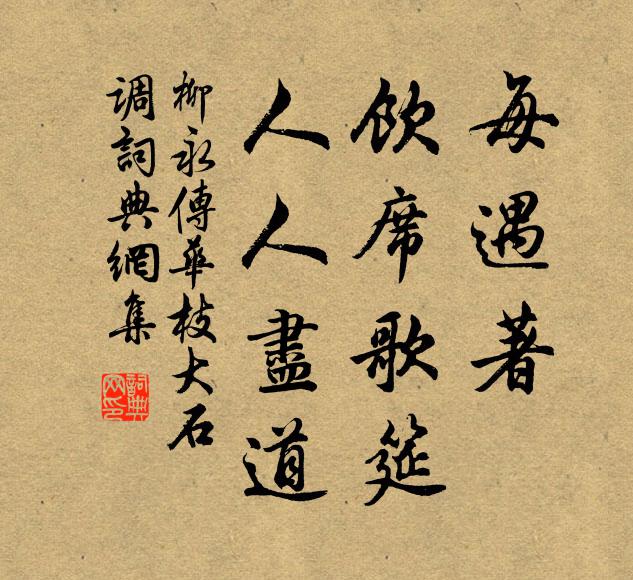 每遇著
飲席歌筵
人人盡道
柳永傳華枝大石
调詞典網集
詞典網印